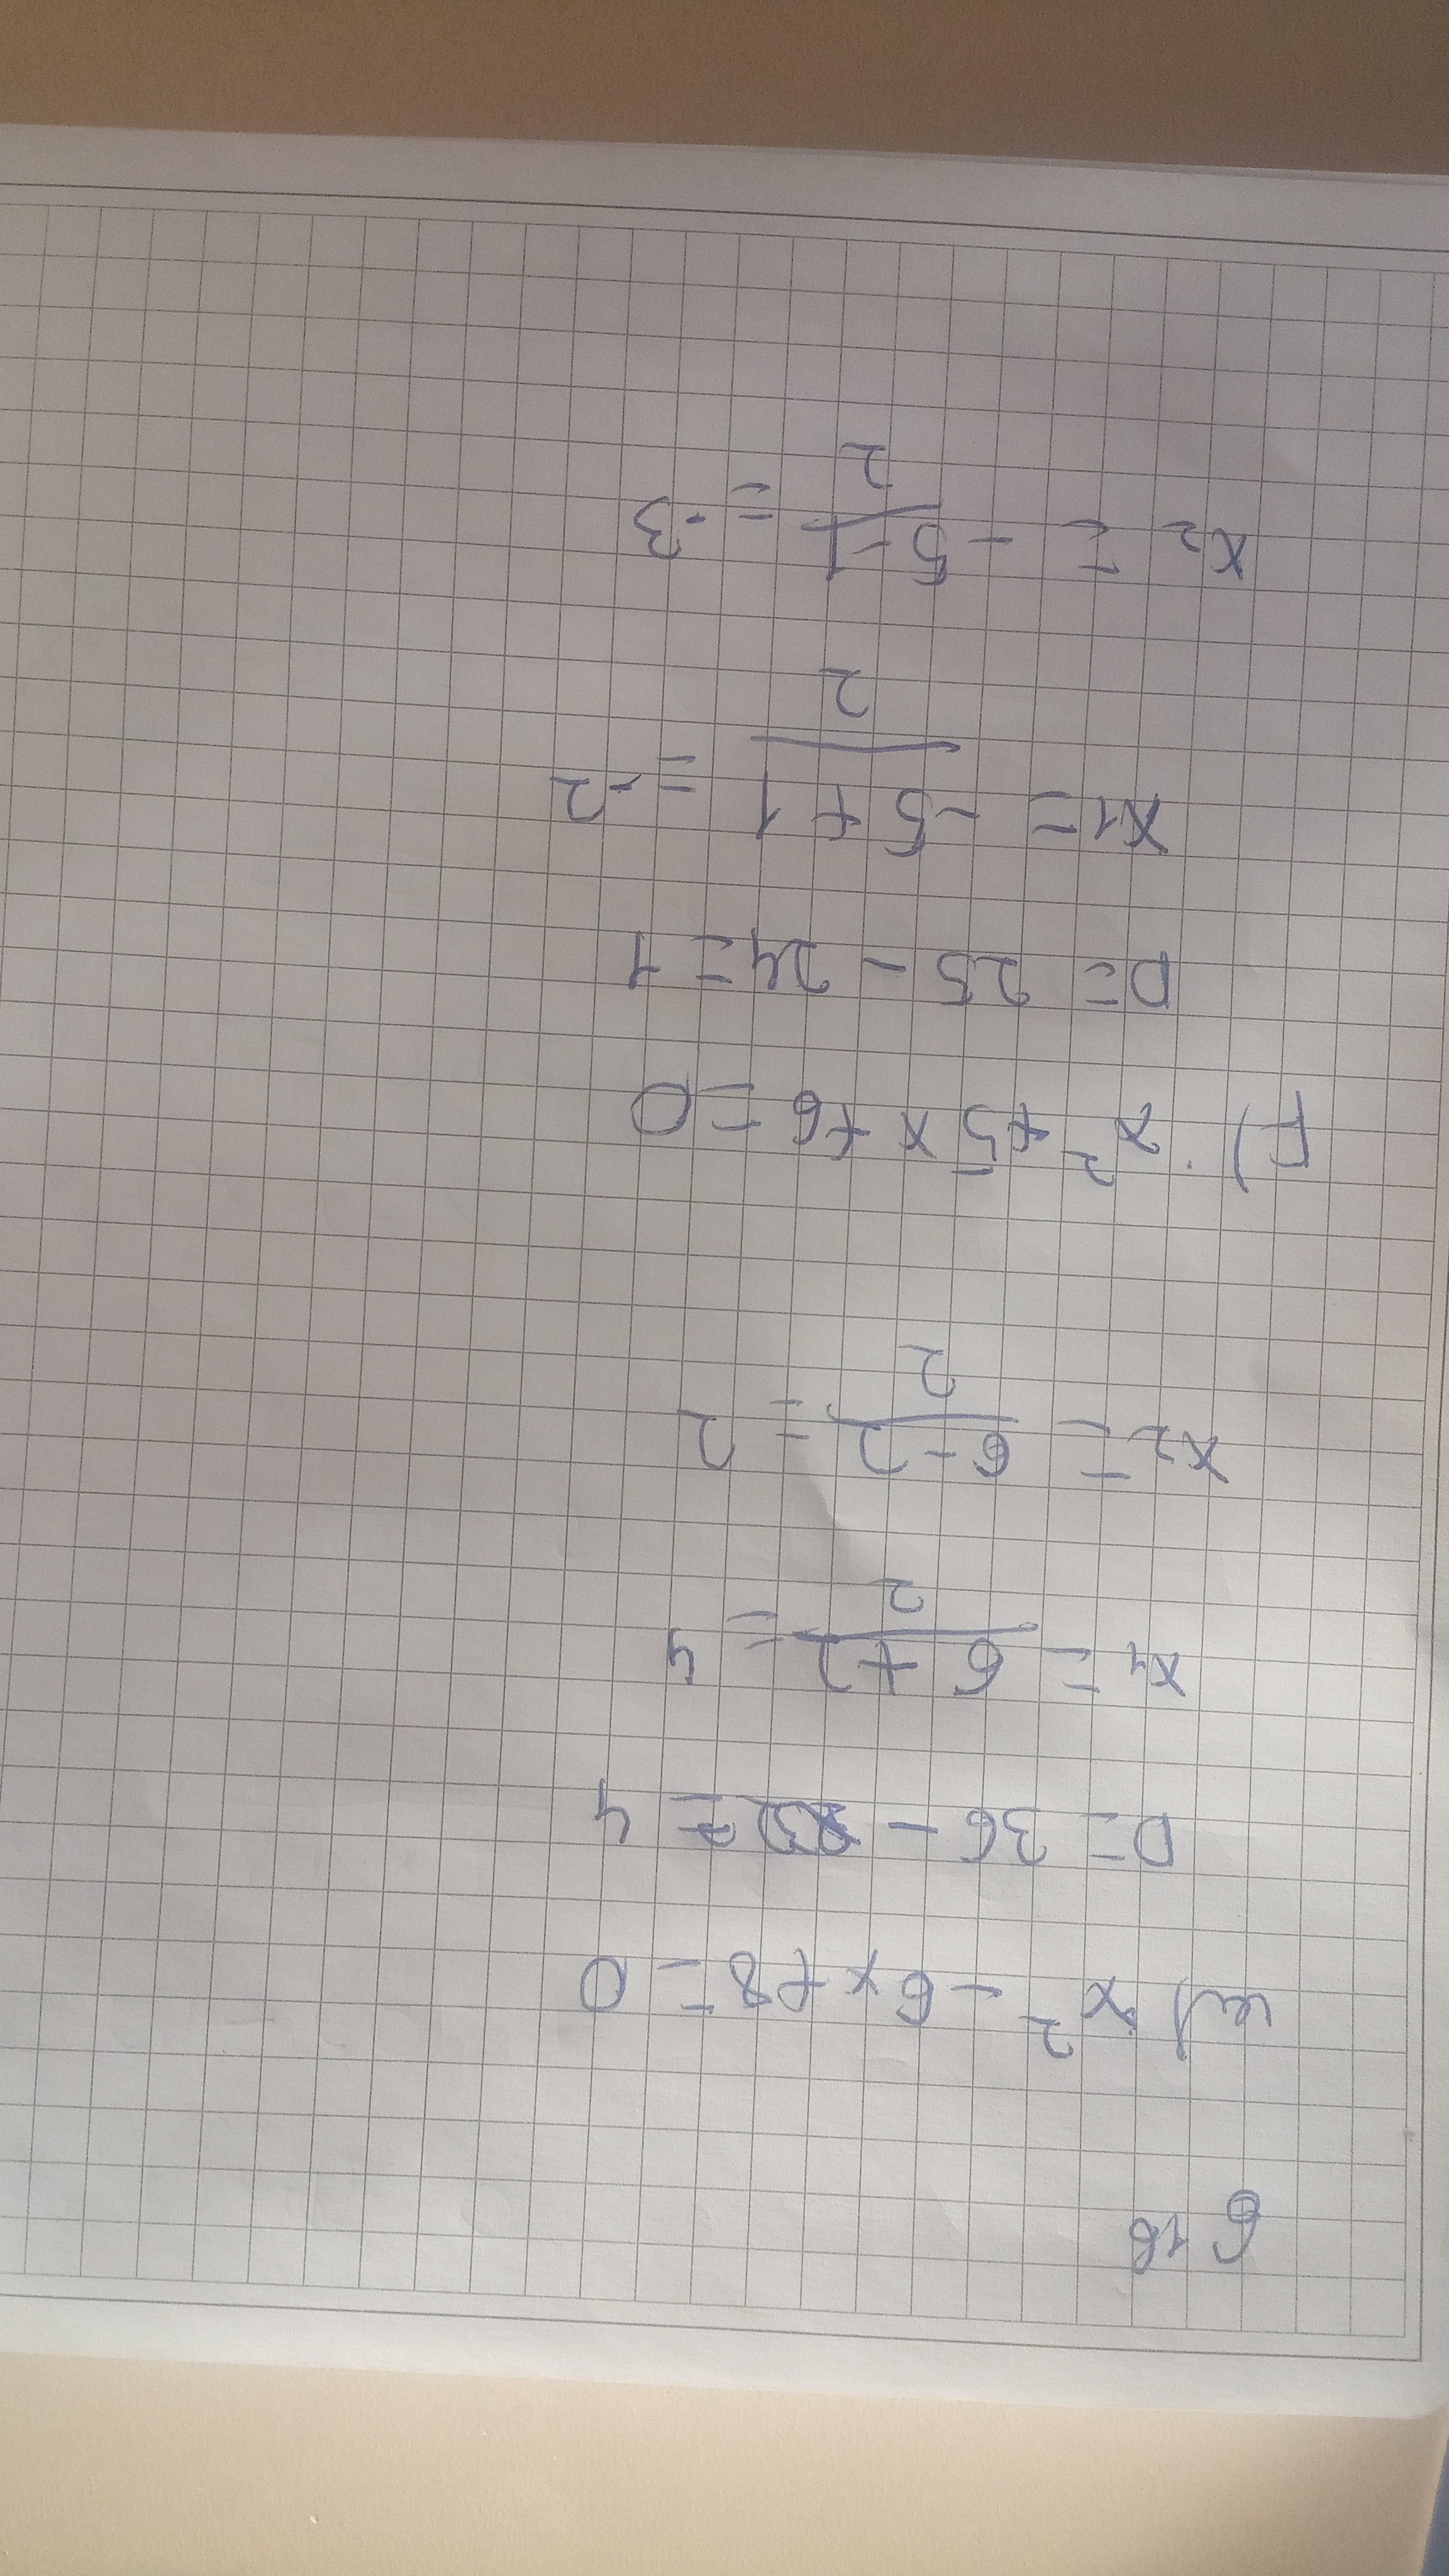 618
x² - 6x + 8 = 0
D = 36 - 32 = 4
x1 = 6 + 2 / 2 = 4
x2 = 6 - 2 / 2 = 2
F) x² + 5x + 6 = 0
D = 25 - 24 = 1
x1 = -5 + 1 / 2 = -2
x2 = -5 - 1 / 2 = -3